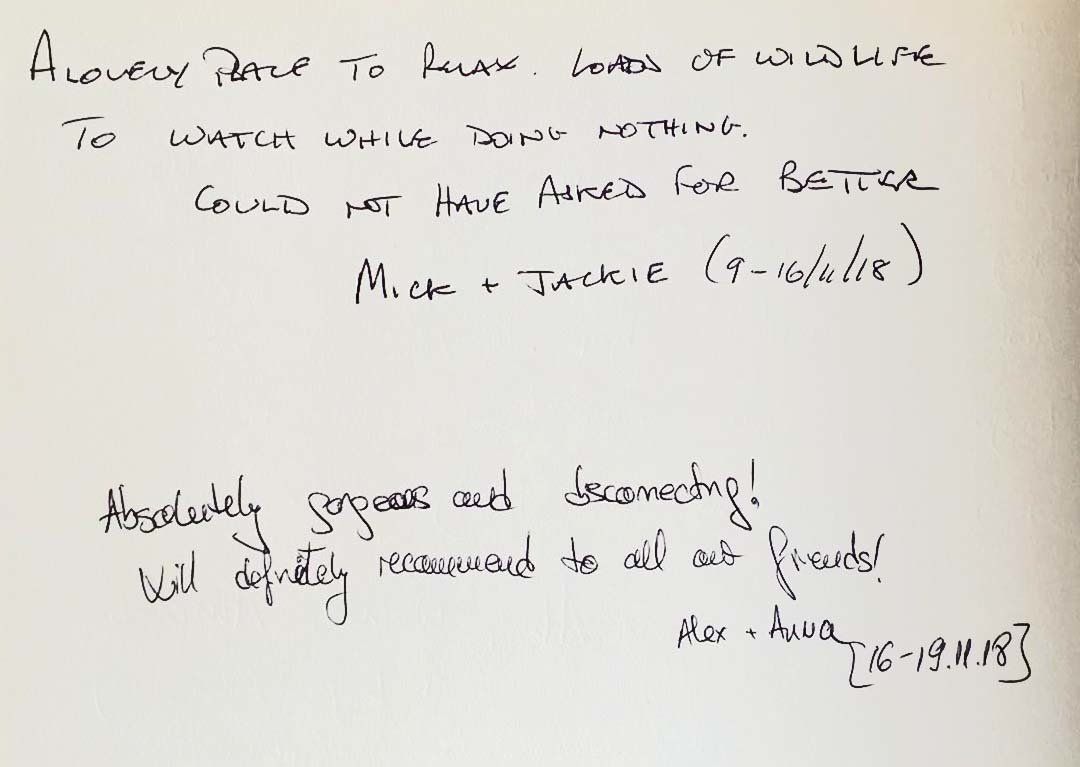 A LOVELY PLACE TO RELAX. LOADS OF WILDLIFE
TO WATCH WHILE DOING NOTHING.
COULD NOT HAVE ASKED FOR BETTER
MICK + JACKIE (9-16/11/18)
Absolutely gorgeous and disconnecting!
Will definitely recommend to all our friends!
Alex + Anna
[16-19.11.18]